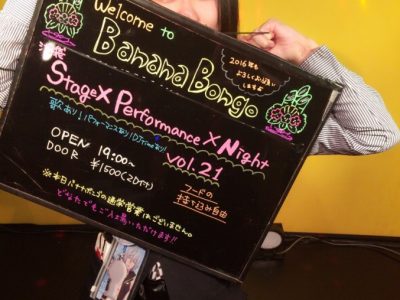 Welcome to
Banana Bongo
2016年も
よろしくお願い
しますよ
StageX Performance X Night
vol.21
歌あり!パフォーマンスあり!DJTimeあり!
OPEN 19:00~
DOOR ¥1500(2D付)
フードの
持ち込み自由
※本日バナナボンゴの通常営業はございません。
どなたでもご入場いただけます!!